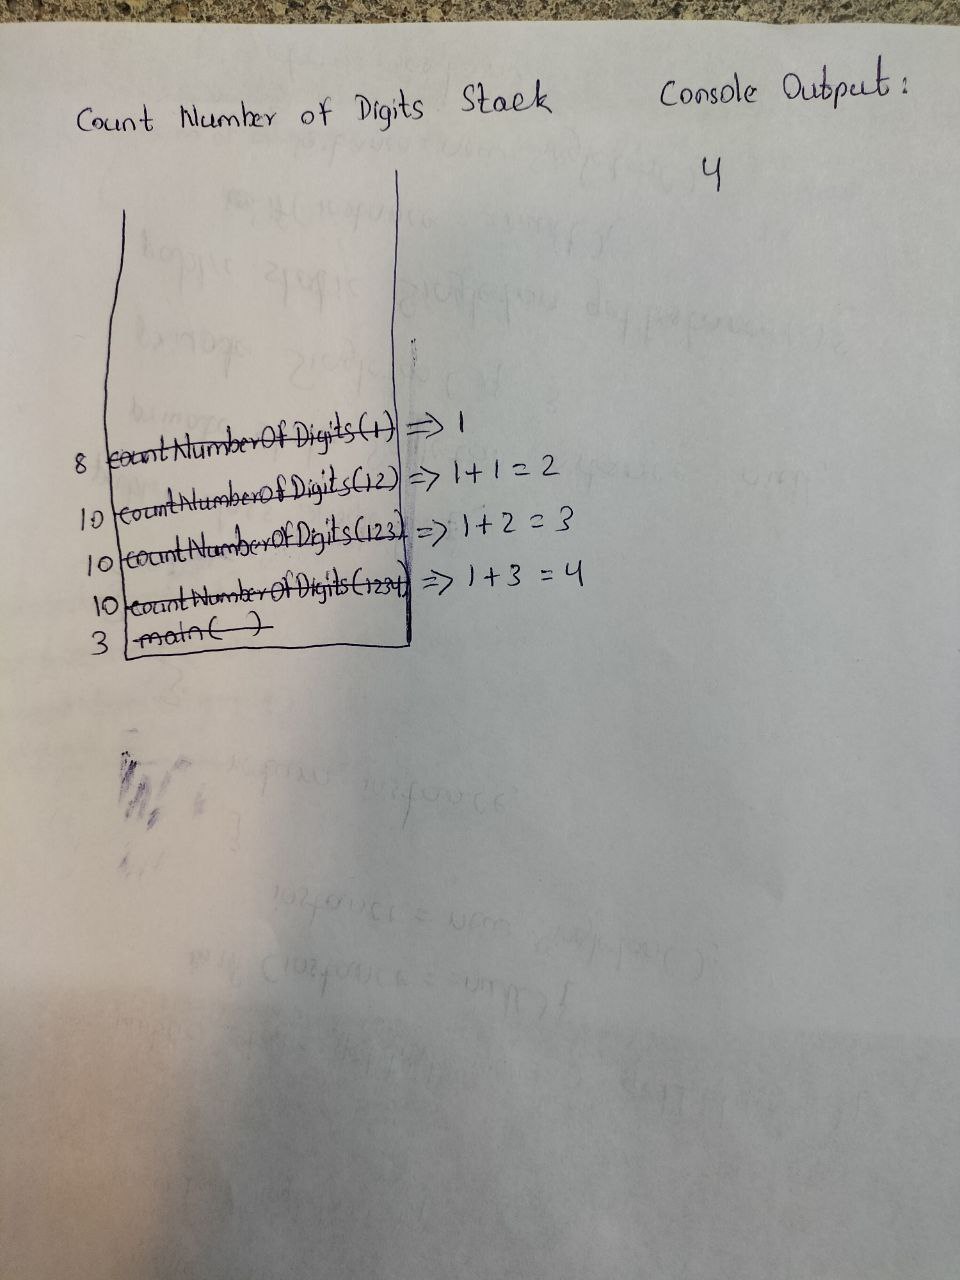 Count Number of Digits Stack
Console Output:
4
8 countNumberOfDigits(1) => 1
10 countNumberOfDigits(12) => 1+1=2
10 countNumberOfDigits(123) => 1+2=3
10 countNumberOfDigits(1234) => 1+3=4
3 main( )